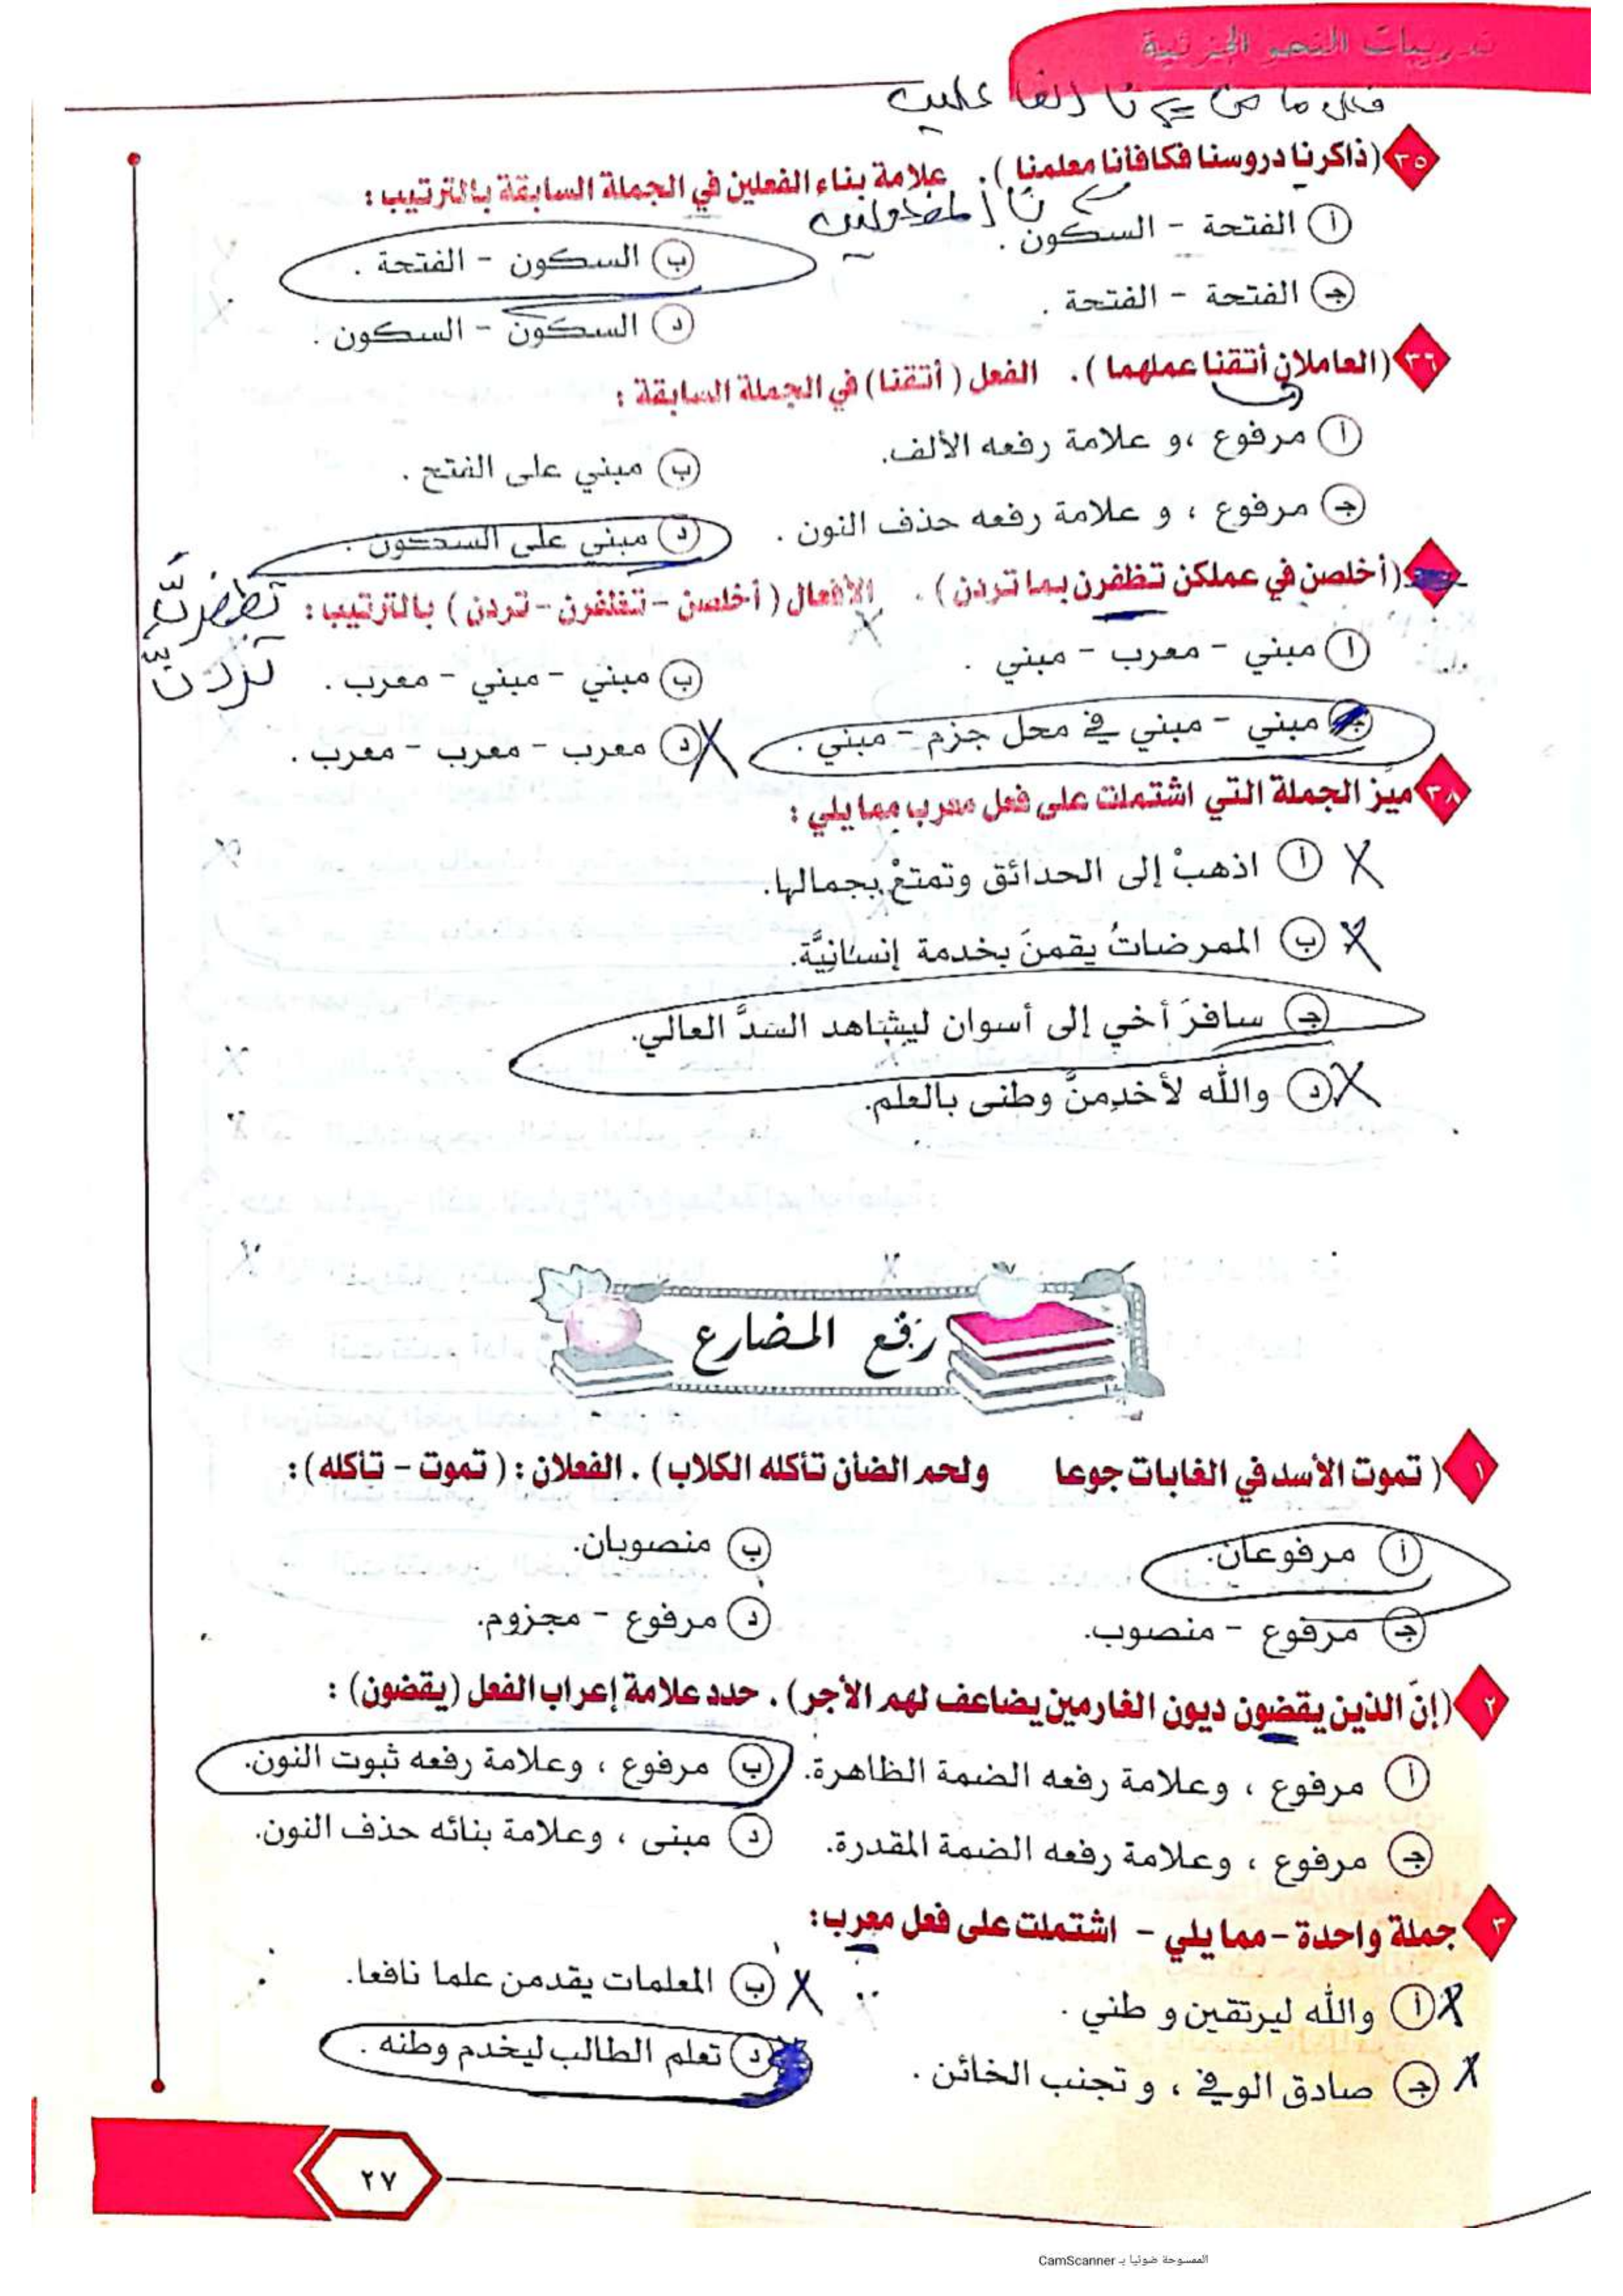 تدريبات النحو الجزئية
فعل ماض نا الفاعلين
٣٥ (ذاكرنا دروسنا فكافأنا معلمنا). علامة بناء الفعلين في الجملة السابقة بالترتيب:
نا المفعولين
أ الفتحة - السكون.
ب السكون - الفتحة.
ج الفتحة - الفتحة.
د السكون - السكون.
٣٦ (العاملان أتقنا عملهما). الفعل (أتقنا) في الجملة السابقة:
أ مرفوع، و علامة رفعه الألف.
ب مبني على الفتح.
ج مرفوع، و علامة رفعه حذف النون.
د مبني على السكون.
(أخلصن في عملكن تظفرن بما تردن). الأفعال (أخلصن - تظفرن - تردن) بالترتيب:
تظفرنَّ
تردنَّ
أ مبني - معرب - مبني.
ب مبني - مبني - معرب.
ج مبني - مبني في محل جزم - مبني.
د معرب - معرب - معرب.
٣٨ ميِّز الجملة التي اشتملت على فعل معرب مما يلي:
أ اذهبْ إلى الحدائق وتمتعْ بجمالها.
ب الممرضاتُ يقمنَ بخدمة إنسانيَّة.
ج سافرَ أخي إلى أسوان ليشاهد السَدَّ العالي.
د والله لأخدِمنَّ وطنى بالعلم.
رفع المضارع
١ (تموت الأسد في الغابات جوعا ولحم الضأن تأكله الكلاب). الفعلان: (تموت - تأكله):
أ مرفوعان.
ب منصوبان.
ج مرفوع - منصوب.
د مرفوع - مجزوم.
٢ (إنَ الذين يقضون ديون الغارمين يضاعف لهم الأجر). حدد علامة إعراب الفعل (يقضون):
أ مرفوع، وعلامة رفعه الضمة الظاهرة.
ب مرفوع، وعلامة رفعه ثبوت النون.
ج مرفوع، وعلامة رفعه الضمة المقدرة.
د مبنى، وعلامة بنائه حذف النون.
٣ جملة واحدة - مما يلي - اشتملت على فعل معرب:
أ والله ليرتقين و طني.
ب المعلمات يقدمن علما نافعا.
ج صادق الوفي، و تجنب الخائن.
د تعلم الطالب ليخدم وطنه.
٢٧
الممسوحة ضوئيا بـ CamScanner